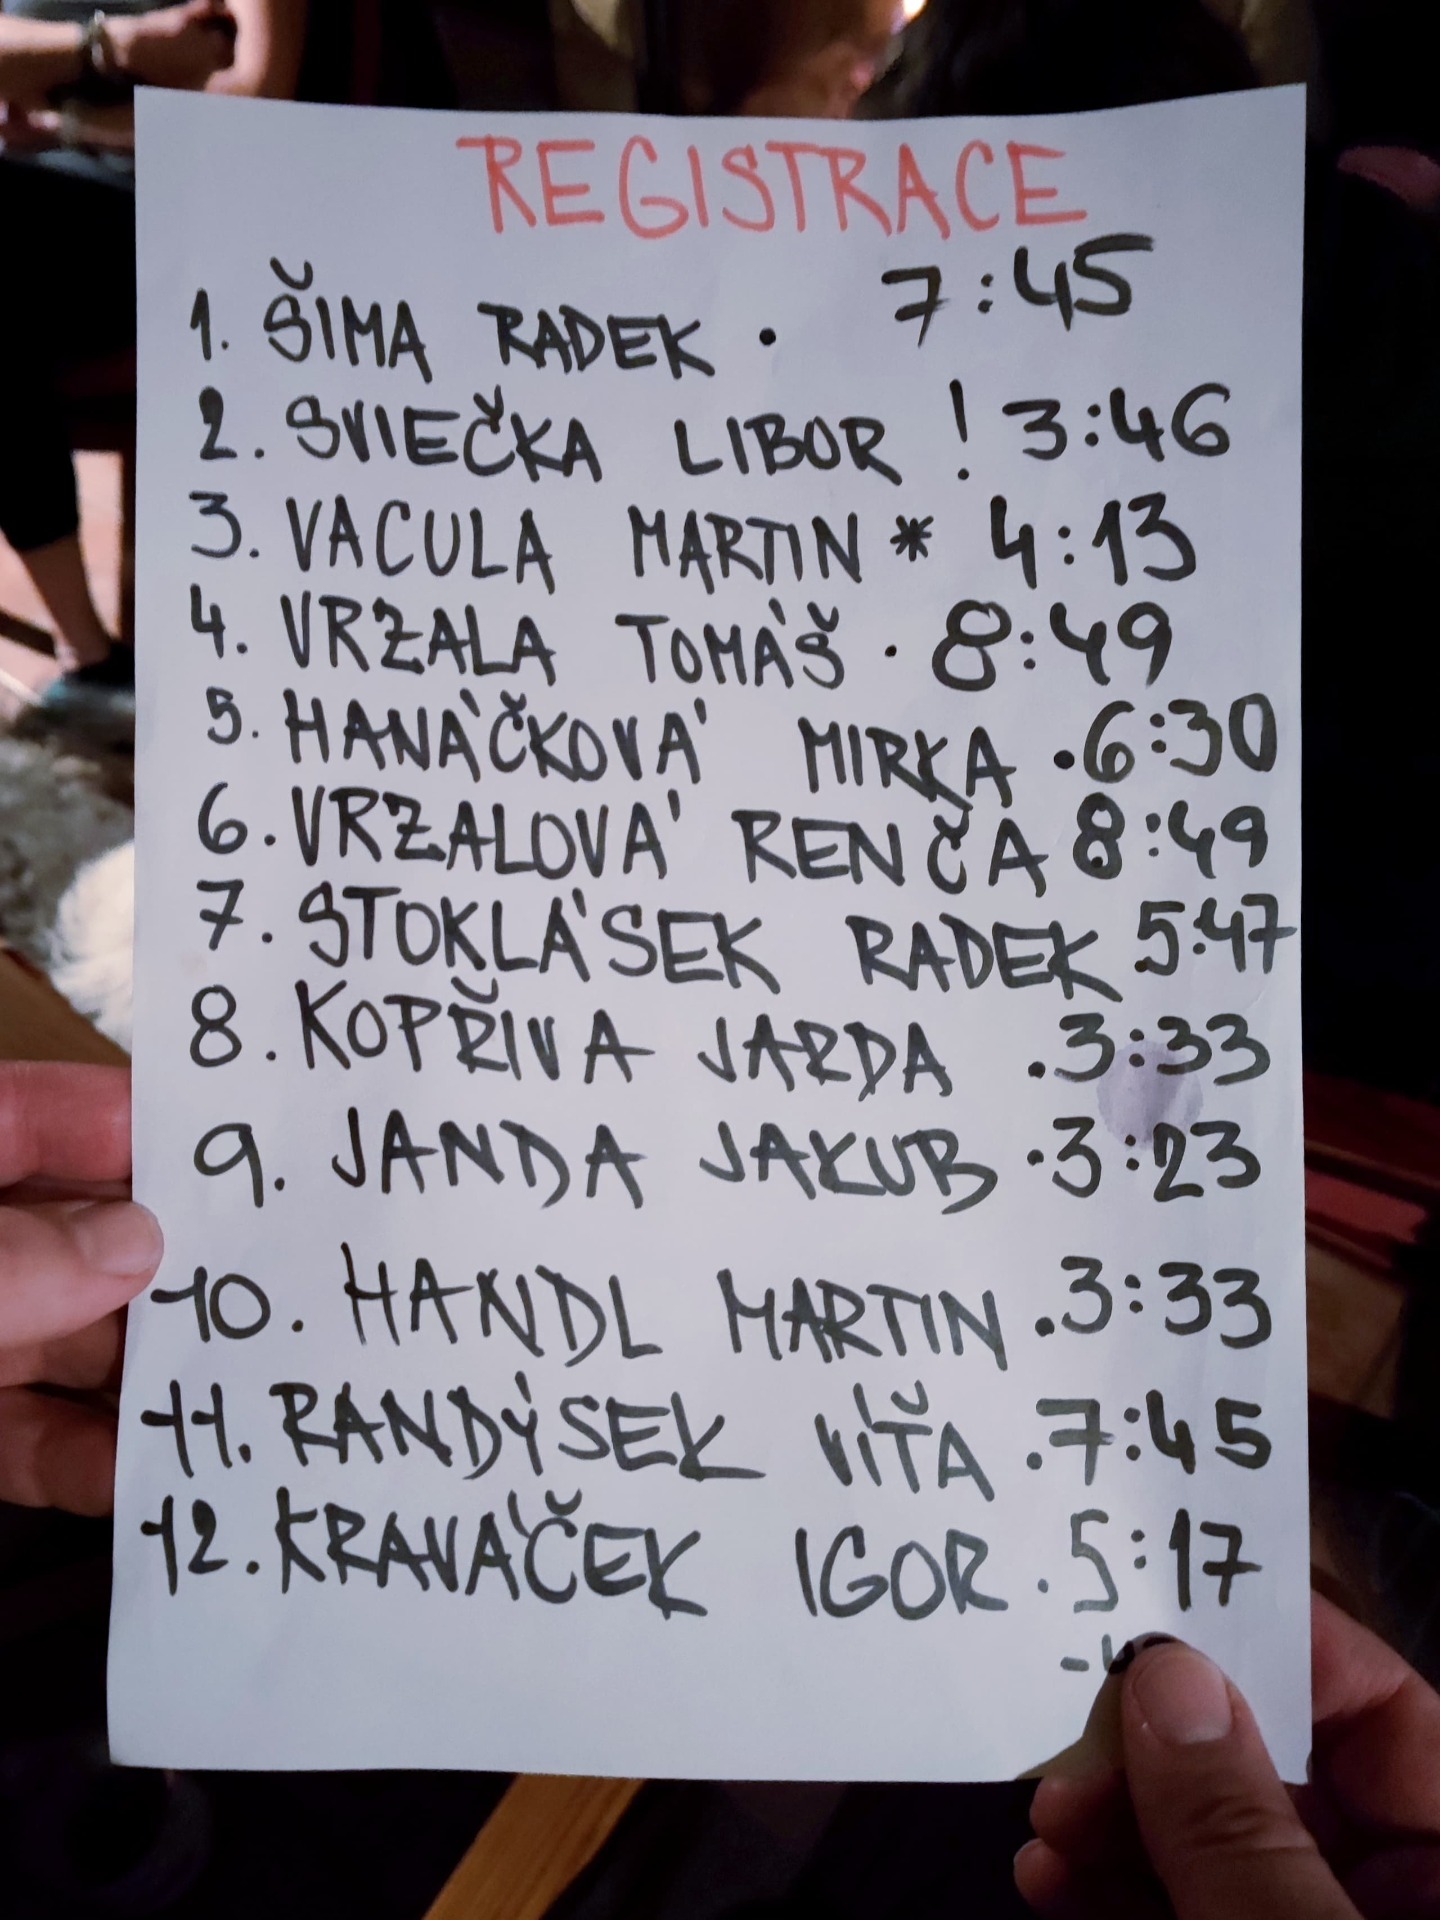 REGISTRACE
1. ŠIMA RADEK . 7:45
2. SVIEČKA LIBOR ! 3:46
3. VACULA MARTIN * 4:13
4. VRZALA TOMÁŠ . 8:49
5. HANÁČKOVÁ MIRKA .6:30
6. VRZALOVÁ RENČA 8:49
7. STOKLÁSEK RADEK 5:47
8. KOPŘIVA JARDA .3:33
9. JANDA JAKUB .3:23
10. HANDL MARTIN .3:33
11. RANDÝSEK VÍŤA .7:45
12. KRAVÁČEK IGOR .5:17